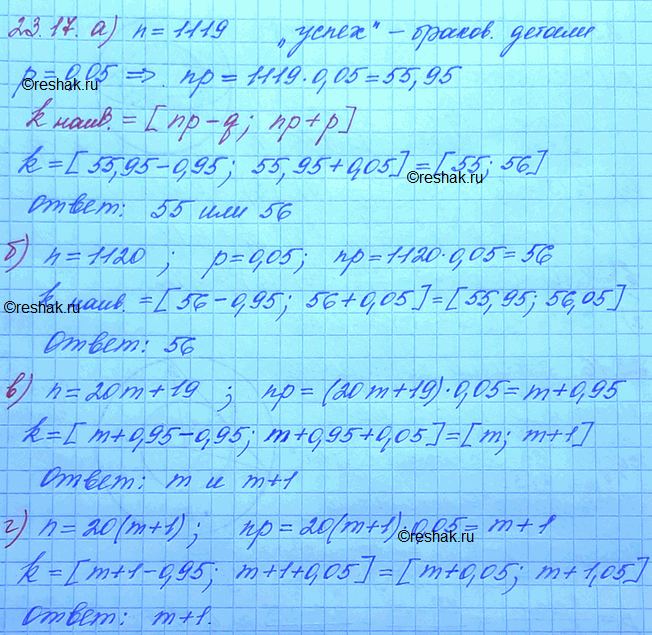 23.17. а) n = 1119 „успех" – браков. детали
p = 0,05 ⇒ np = 1119·0,05 = 55,95
©reshak.ru
k наив. = [np – q; np + p]
k = [55,95 – 0,95; 55,95 + 0,05] = [55; 56]
©reshak.ru
ответ: 55 или 56
б) n = 1120 ; p = 0,05; np = 1120·0,05 = 56
k наив. = [56 – 0,95; 56 + 0,05] = [55,95; 56,05]
©reshak.ru
ответ: 56
в) n = 20m + 19 ; np = (20m + 19)·0,05 = m + 0,95
k = [m + 0,95 – 0,95; m + 0,95 + 0,05] = [m; m + 1]
ответ: m и m + 1
г) n = 20(m + 1) ; np = 20(m + 1)·0,05 = m + 1
©reshak.ru
k = [m + 1 – 0,95; m + 1 + 0,05] = [m + 0,05; m + 1,05]
ответ: m + 1.